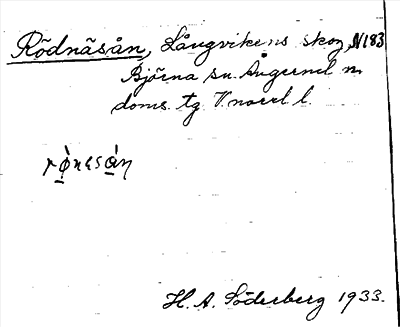 Rödnäsån, Långvikens skog, N183
Björna sn. Ångerml. n.
doms. tg. V.norrl. l.
H. A. Söderberg 1933.